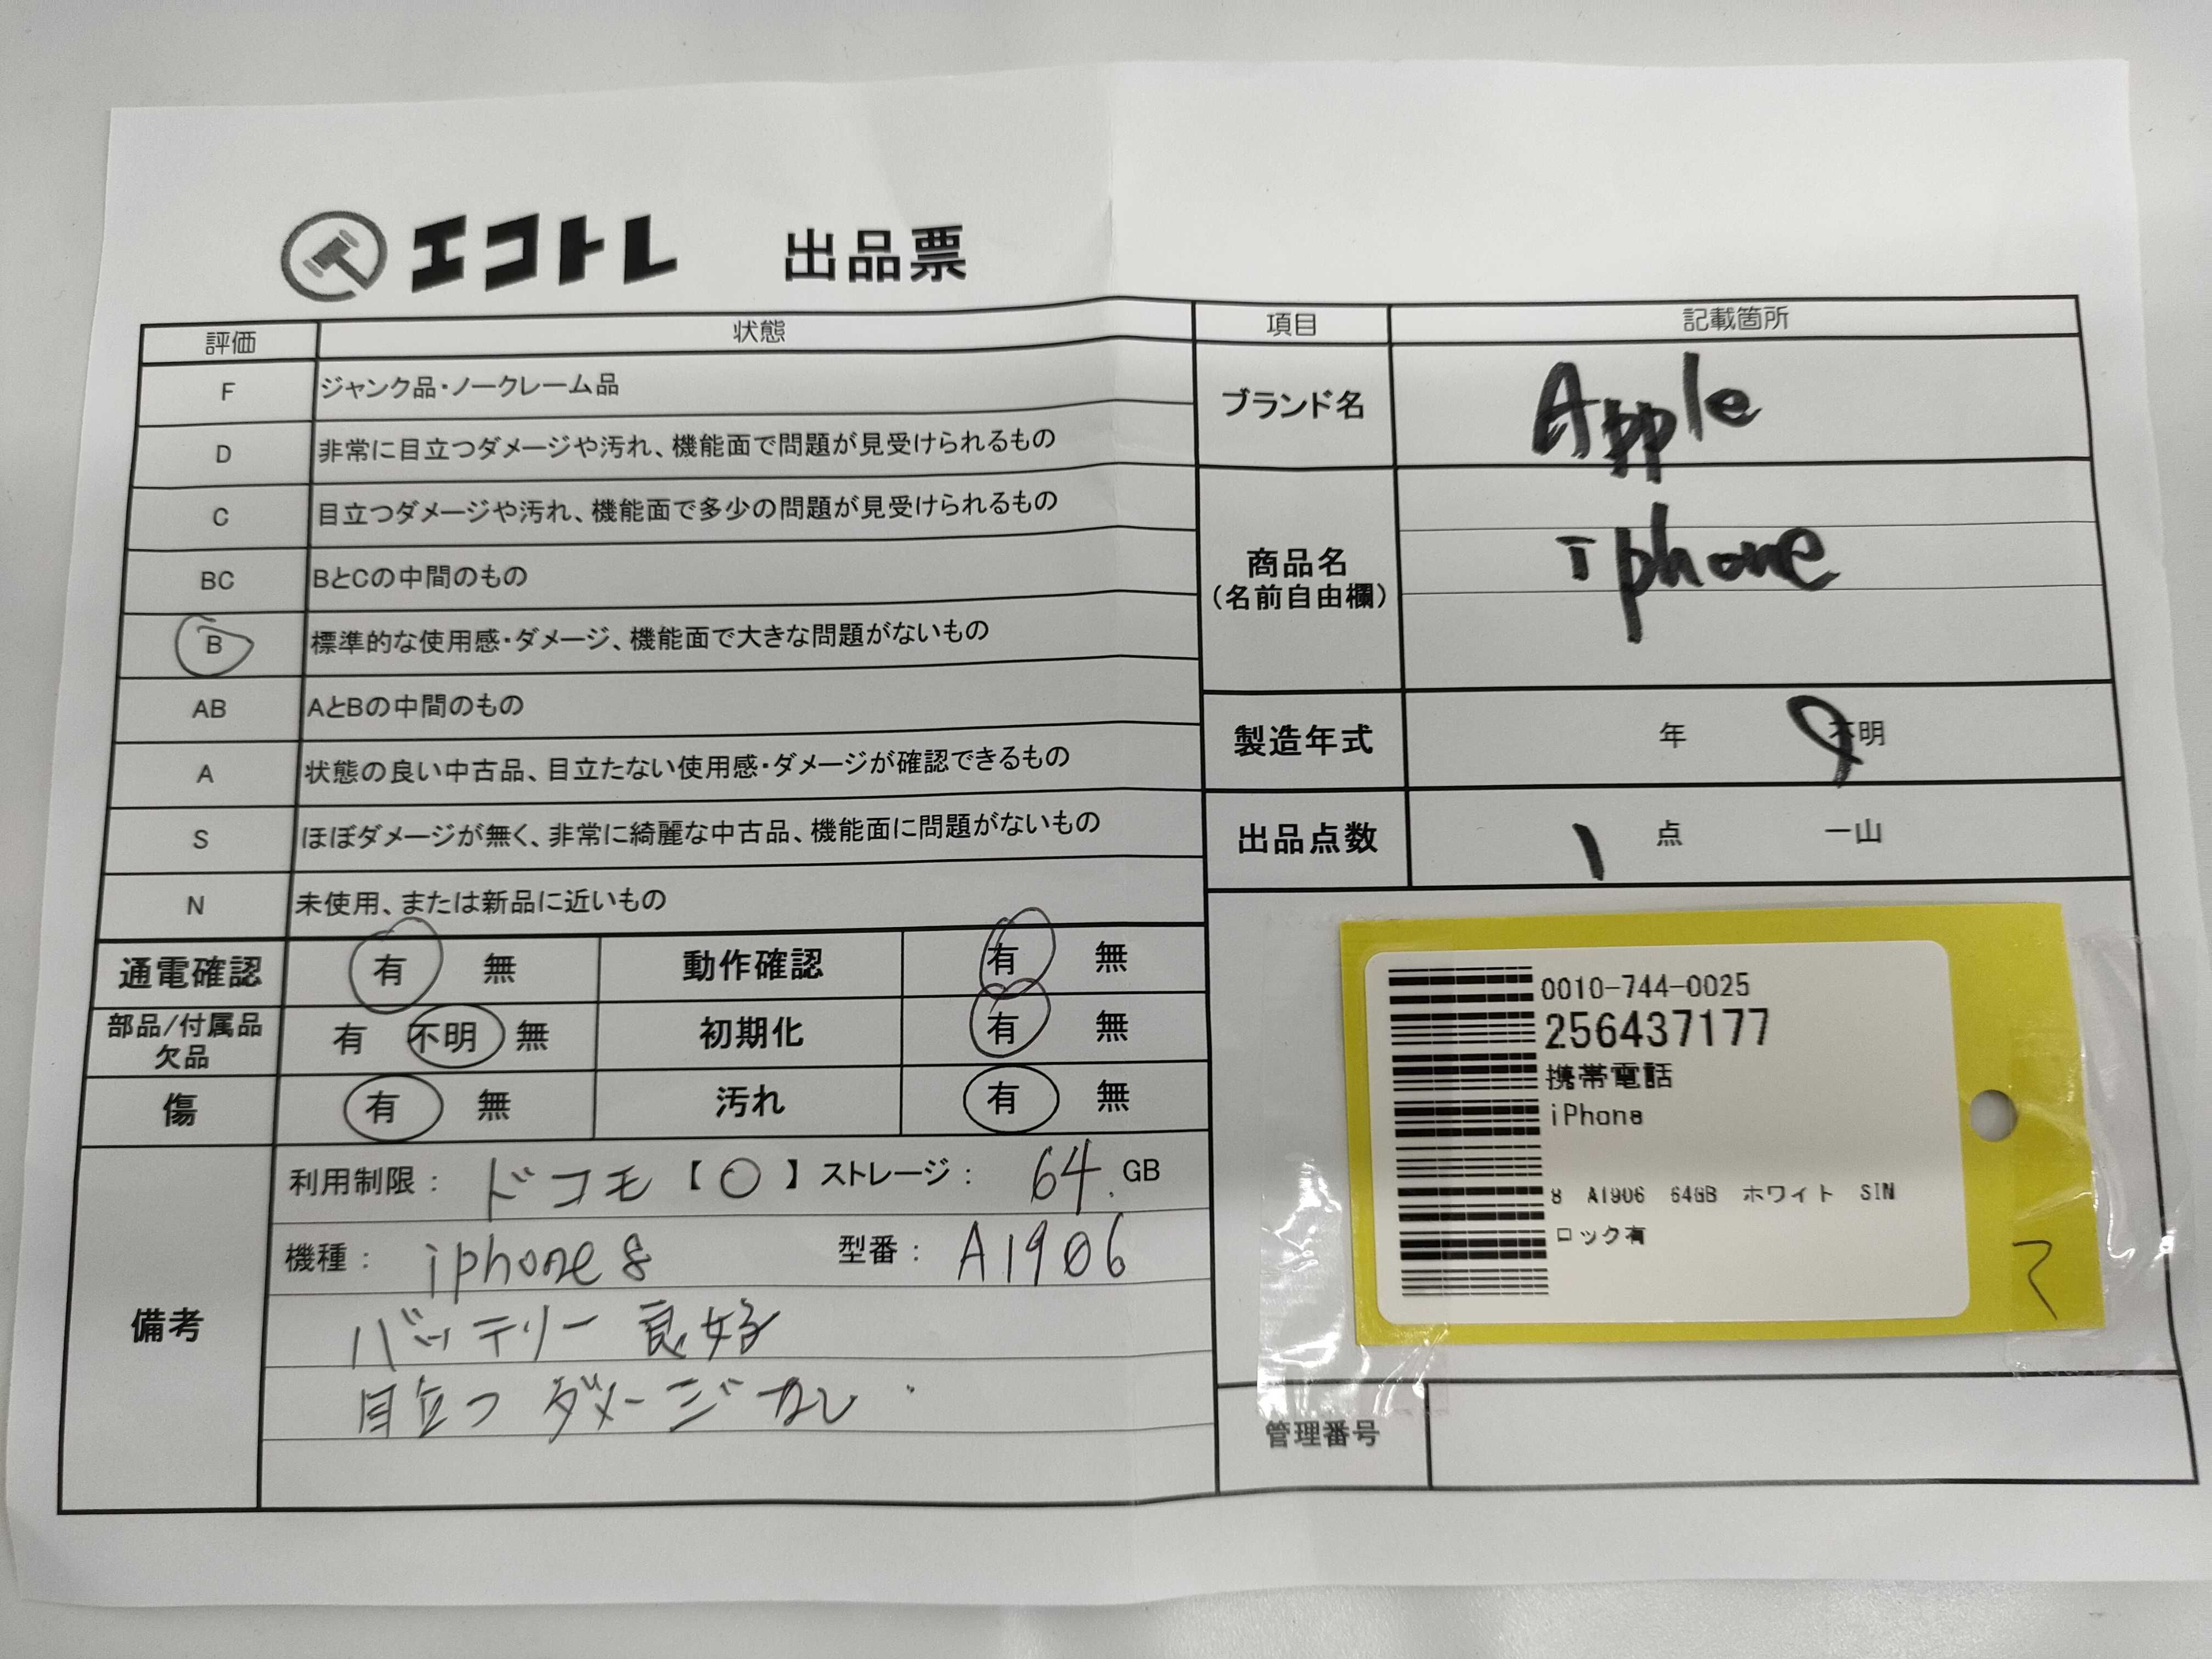 エコトレ 出品票
評価 状態
F ジャンク品・ノークレーム品
D 非常に目立つダメージや汚れ、機能面で問題が見受けられるもの
C 目立つダメージや汚れ、機能面で多少の問題が見受けられるもの
BC BとCの中間のもの
B 標準的な使用感・ダメージ、機能面で大きな問題がないもの
AB AとBの中間のもの
A 状態の良い中古品、目立たない使用感・ダメージが確認できるもの
S ほぼダメージが無く、非常に綺麗な中古品、機能面に問題がないもの
N 未使用、または新品に近いもの
通電確認 有 無 動作確認 有 無
部品/付属品 欠品 有 不明 無 初期化 有 無
傷 有 無 汚れ 有 無
備考
利用制限: ドコモ 【○】ストレージ: 64 GB
機種: iphone 8 型番: A1906
バッテリー 良好
目立つ ダメージなし
項目 記載箇所
ブランド名 Apple
商品名
(名前自由欄) iphone
製造年式 年 不明
出品点数 1 点 一山
0010-744-0025
256437177
携帯電話
iPhone
8 A1906 64GB ホワイト SIN
ロック有
管理番号